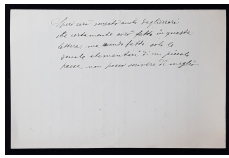 Aprì così sempre anche sbagliassi
che certamente avrò fatto in questa
lettera; ma avendo fatto solo le
scuole elementari di un piccolo
paese, non posso scrivere di meglio.